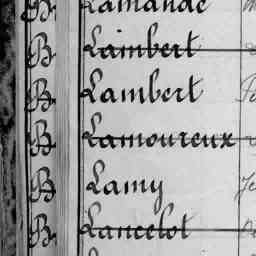 B Lamande
B Lambert
B Lambert
B Lamoureux
B Lamy
B Lancelot